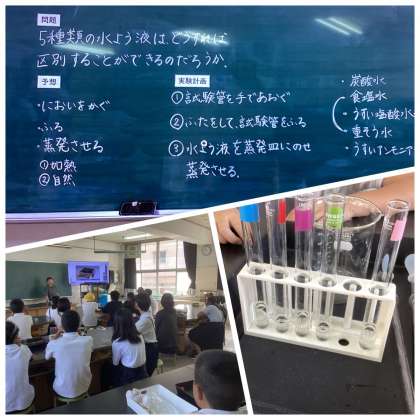 問題
5種類の水よう液は、どうすれば
区別することができるのだろうか。
予想
・においをかぐ
・ふる
・蒸発させる
①加熱
②自然
実験計画
①試験管を手であおぐ
②ふたをして、試験管をふる
③水よう液を蒸発皿にのせ
蒸発させる。
・炭酸水
・食塩水
・うすい塩酸
・重そう水
・うすいアンモニア